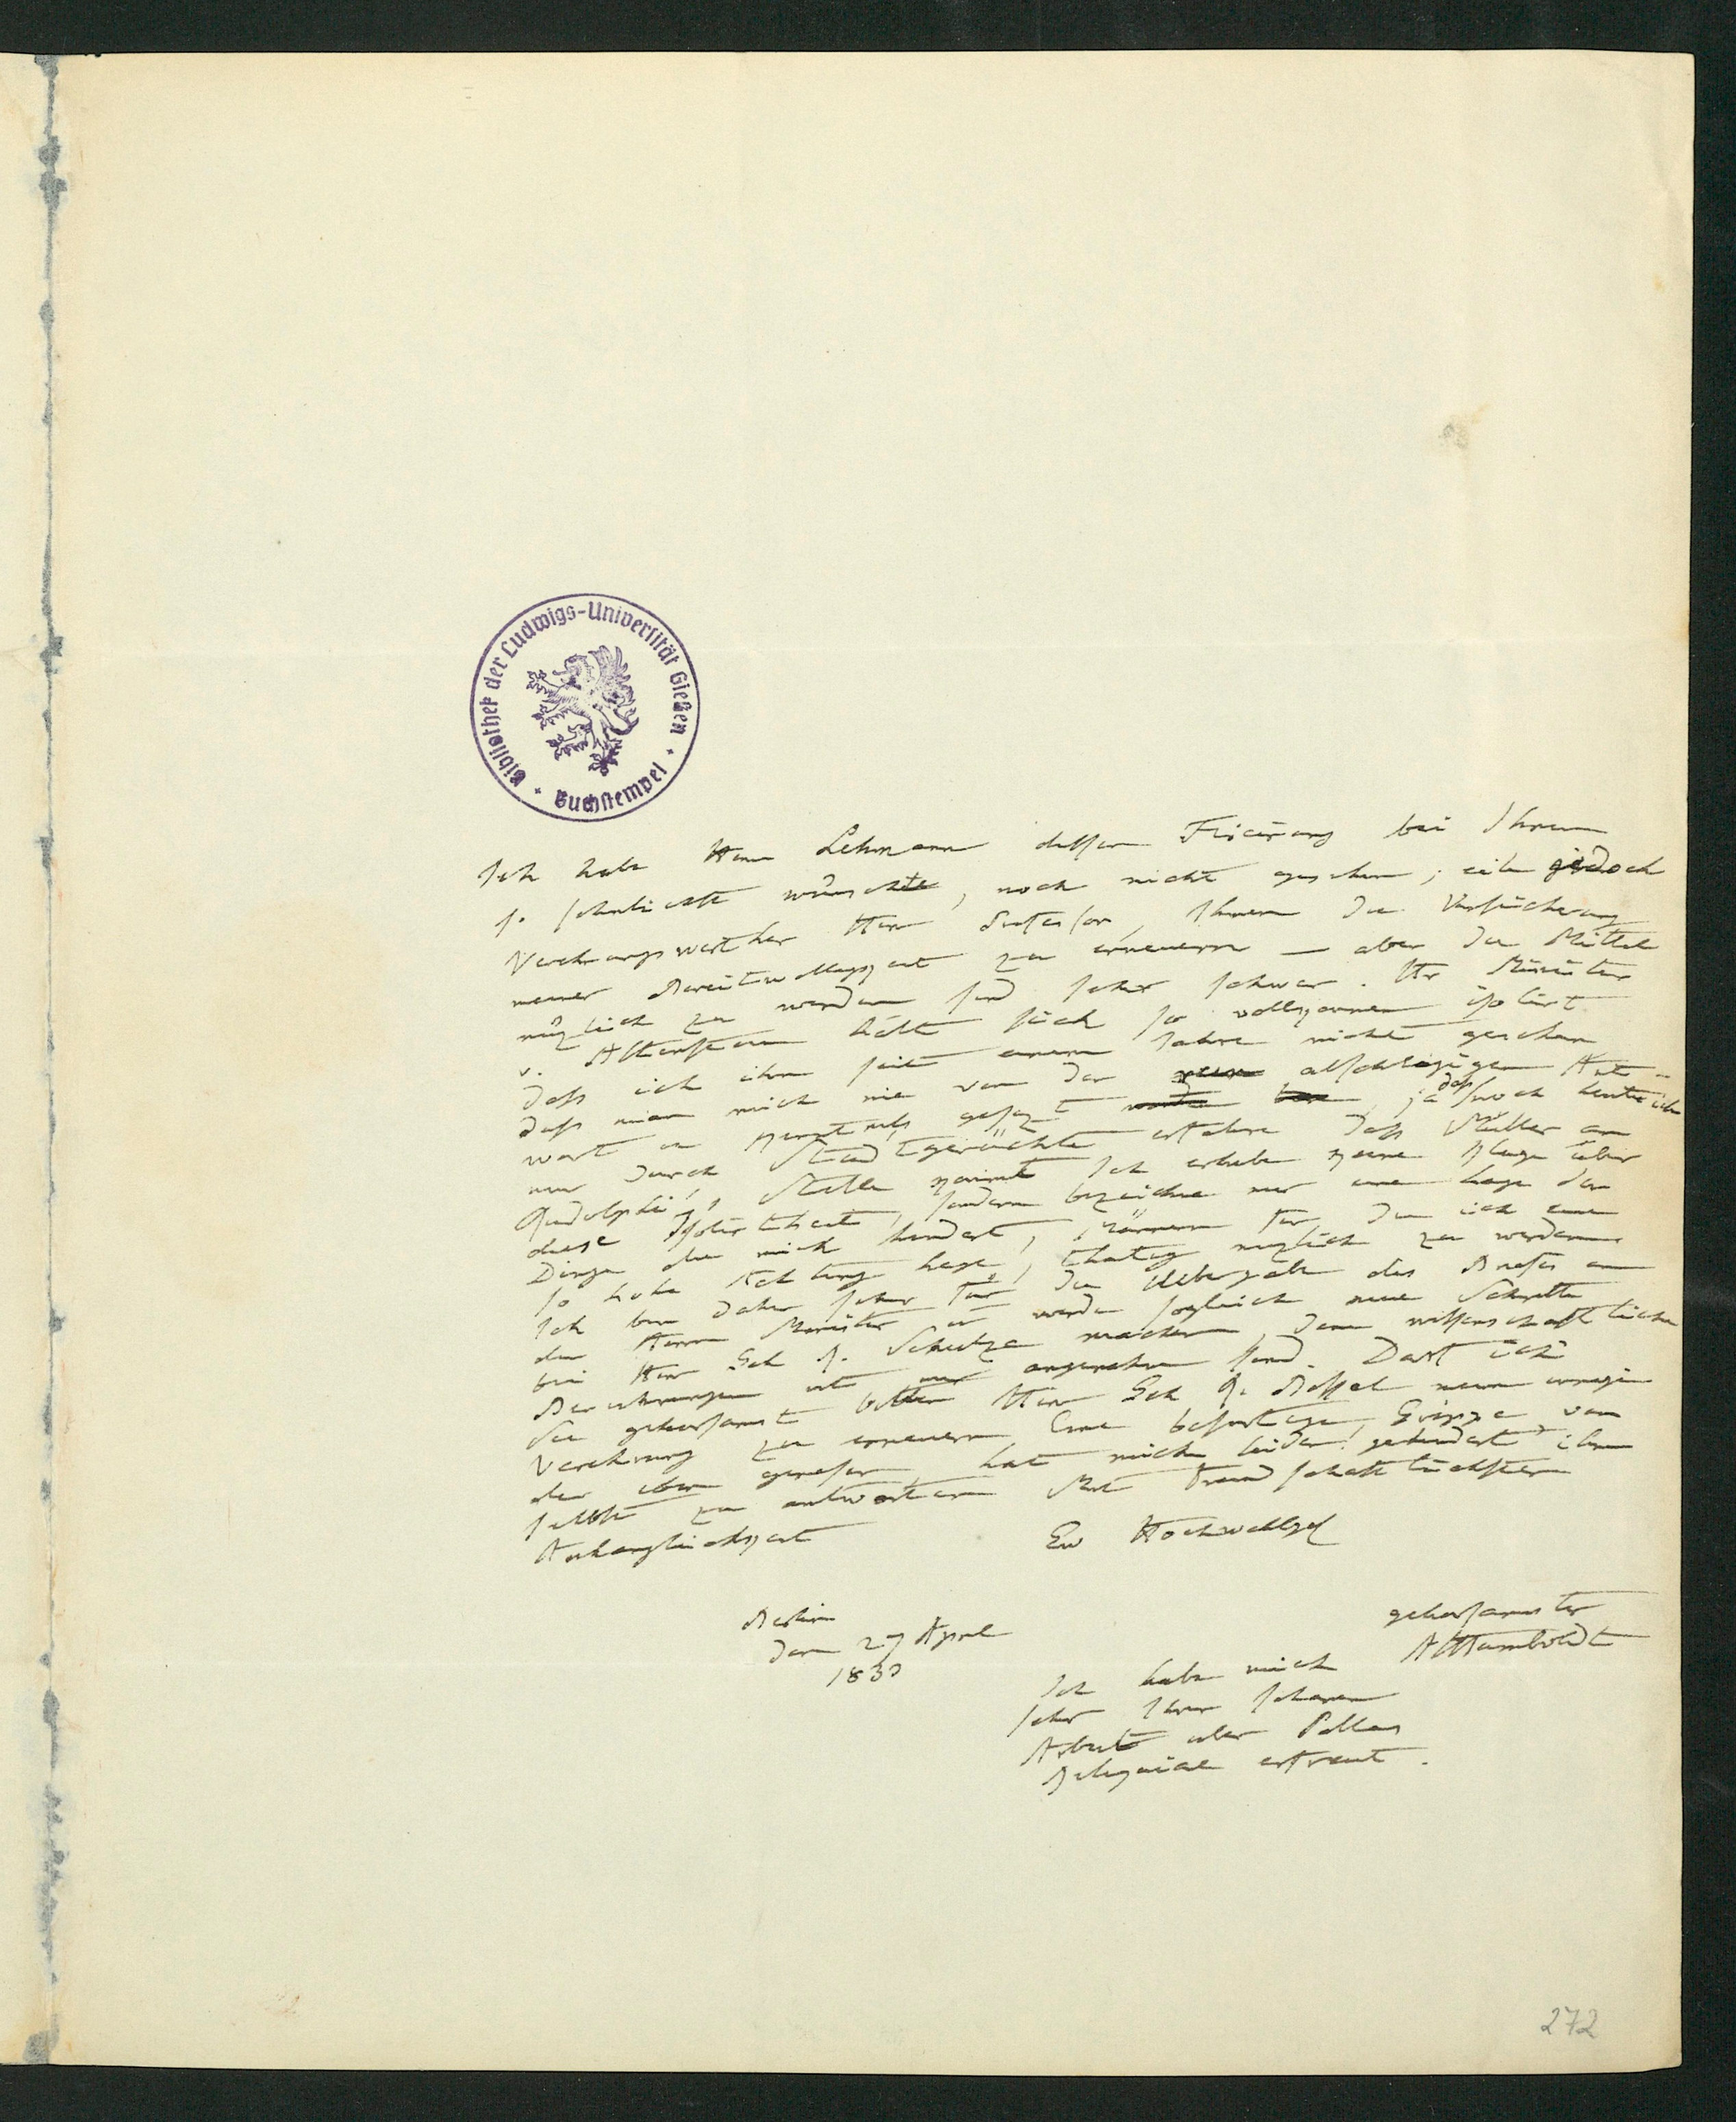 Bibliothek der Ludwigs-Universität Gießen
Buchstempel
Ich habe Herrn Lehmann dessen Fixirung bei Ihnen
so sehnlichst wünschte, noch nicht gesehen; eile jedoch
Verehrungswerther Herr Professor, Ihnen die Versicherung
meiner Bereitwilligkeit zu erneuern – aber die Mittel
nüzlich zu werden sind sehr schwer. Hr Minister
v. Altenstein hält sich so vollkommen isolirt
dass ich ihn seit einem Jahre nicht gesehen
dass man mich nie von der abschlägigen Ant-
wort in Kenntniss gesezt, ja dass noch heute ich
nur durch Stadtgerüchte erfahre dass Müller an
Rudolphi's Stelle kömmt Ich erhebe keine Klage über
diese Isolirtheit, sondern bezeichne nur eine Lage der
Dinge die mich hindert, Männern für die ich eine
so hohe Achtung hege, thätig nuzlich zu werden
Ich bin daher sehr für die Uebergabe des Briefes an
den Herrn Minister u werde sogleich neue Schritte
bei Herr Geh R. Schulze machen, dem wissenschaftliche
Bereicherungen angenehm sind. Darf ich
Sie gehorsamst bitten Herr Geh R. Nassel meine innige
Verehrung zu erneuern Eine bösartige Grippe von
der eben genesen, hat mich leider! gehindert ihm
selbst zu antworten Mit freundschaftlichster
Anhänglichkeit
Ew Hochwohlgb
gehorsamster
AHumboldt
Berlin
den 27 April
1833
Ich habe mich
sehr Ihrer schönen
Arbeit über Pallas
Reliquien erfreut.
272